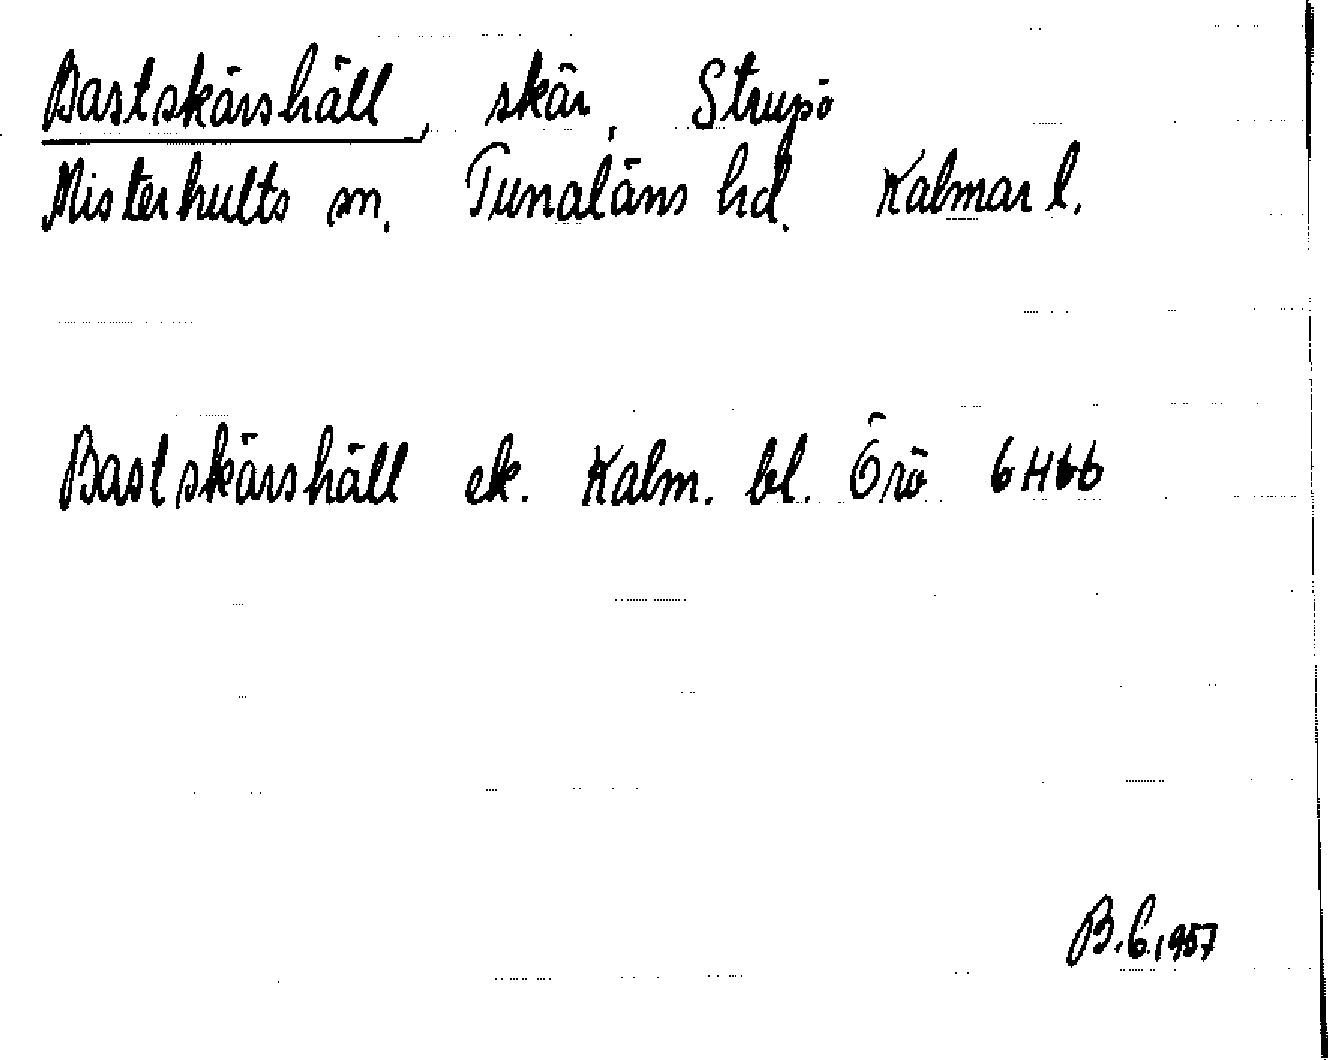 Bastskärshäll, skär, Strupö
Misterhults sn. Tunaläns hd. Kalmar l.
Bastskärshäll ek. Kalm. bl. Örö 6H6b
B.G.1957